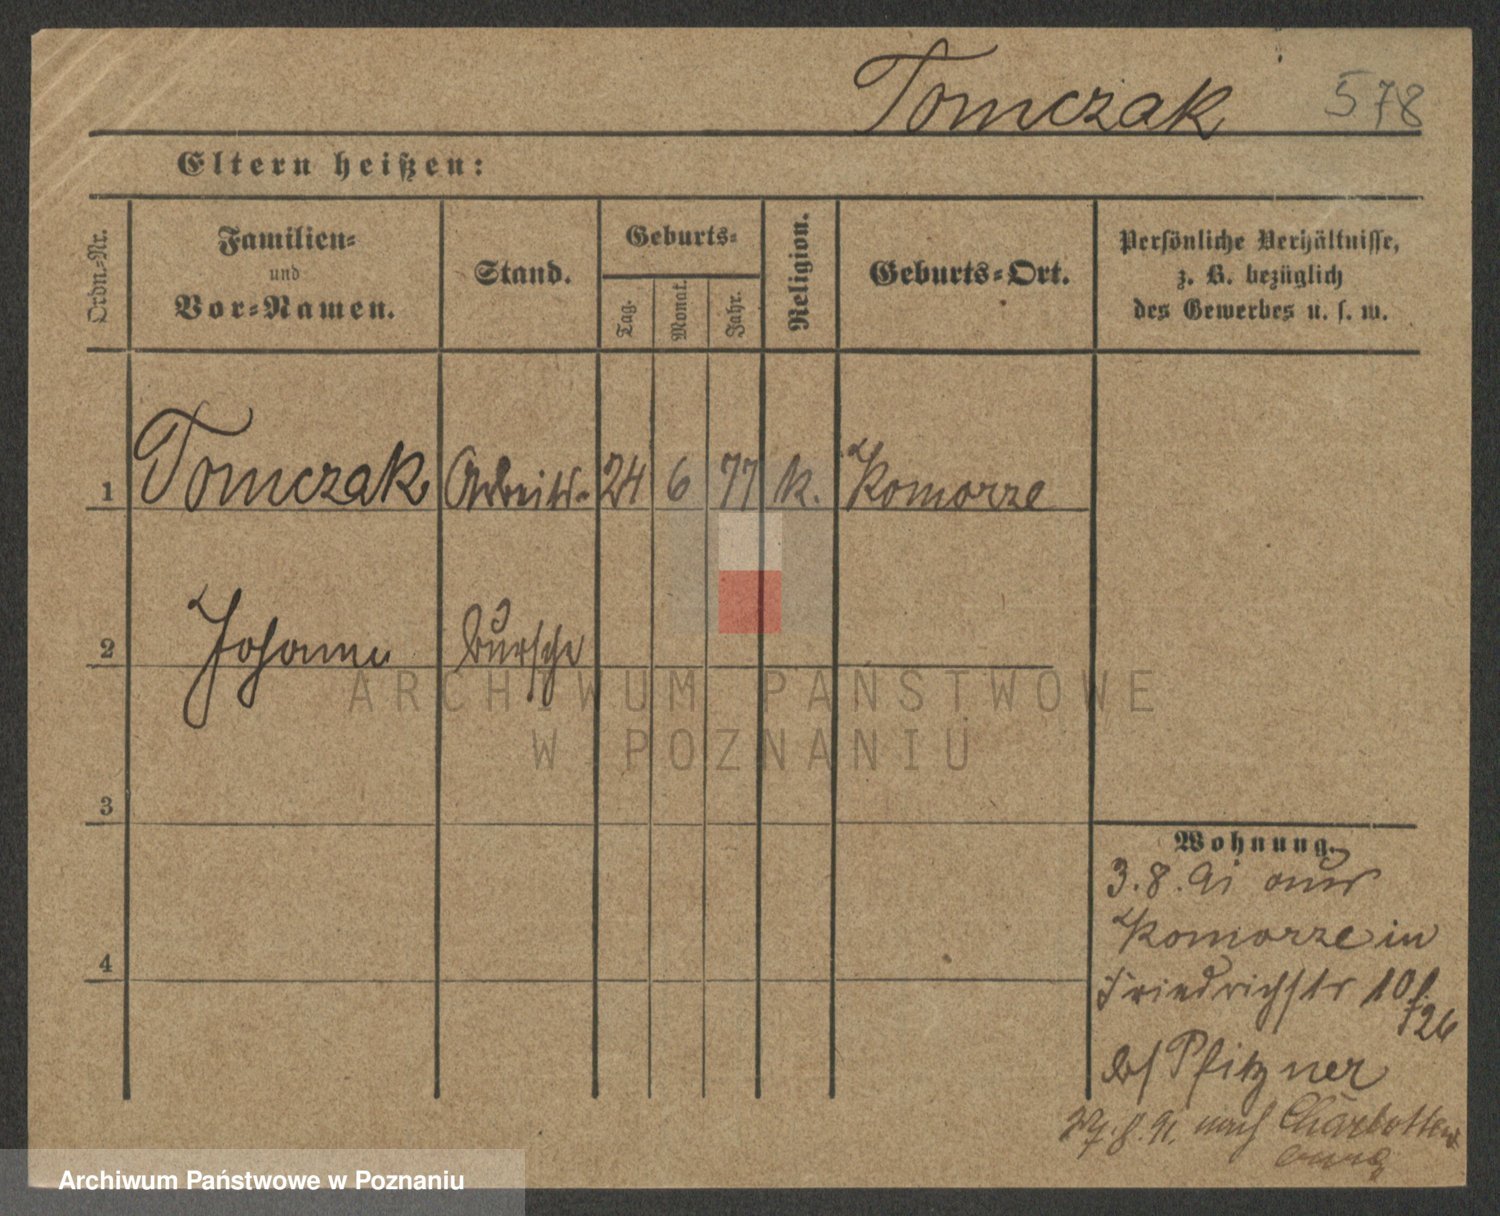 Tomczak 578
Eltern heißen:
Ordn.-Nr.
Familien-
und
Vor-Namen.
Stand.
Geburts-
Tag.
Monat.
Jahr.
Religion.
Geburts-Ort.
Persönliche Verhältnisse,
z. B. bezüglich
des Gewerbes u. s. w.
1 Tomczak Arbeits- 24 6 77 k. Komorze
2 Johann bursche
ARCHIWUM PAŃSTWOWE
W POZNANIU
3
4
Wohnung.
3. 8. 91 aus
Komorze in
Friedrichstr 10
/26
b/ Pfitzner
8. 91. nach Charlotten
burg
Archiwum Państwowe w Poznaniu